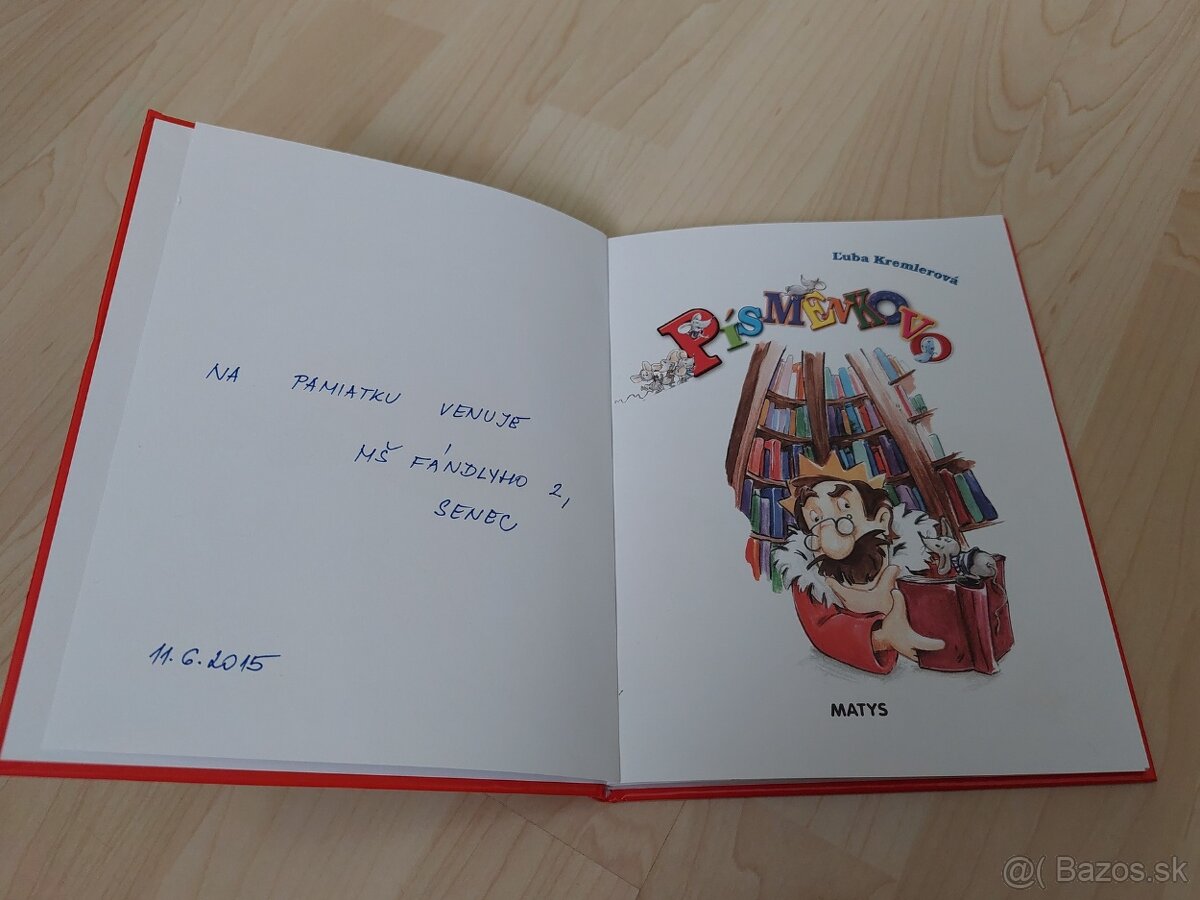 NA PAMIATKU VENUJE
MŠ FÁNDLYHO 2,
SENEC
11.6.2015
Ľuba Kremlerová
PÍSMENKOVO
MATYS
@( Bazos.sk